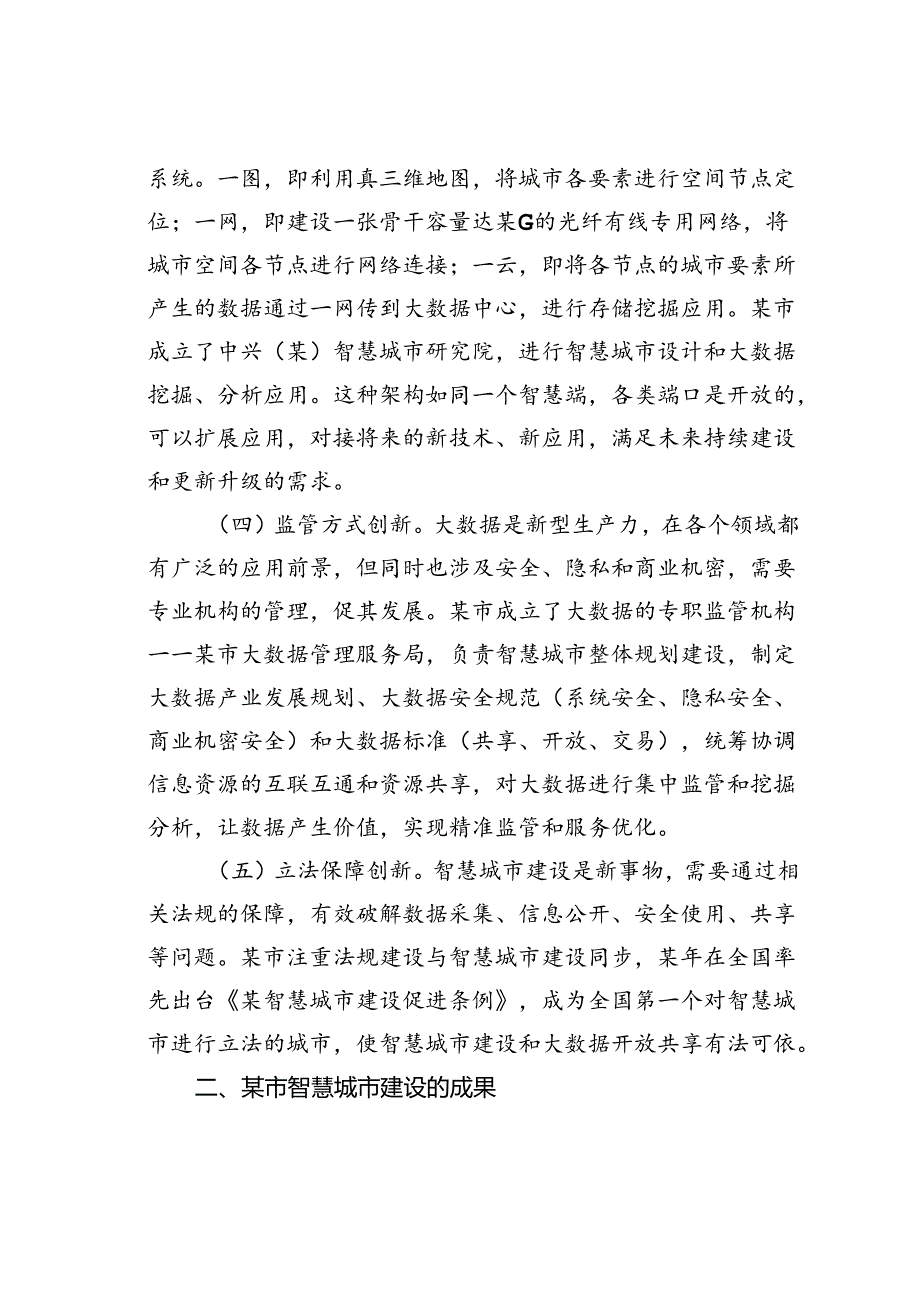 系统。一图，即利用真三维地图，将城市各要素进行空间节点定
位；一网，即建设一张骨干容量达某G的光纤有线专用网络，将
城市空间各节点进行网络连接；一云，即将各节点的城市要素所
产生的数据通过一网传到大数据中心，进行存储挖掘应用。某市
成立了中兴（某）智慧城市研究院，进行智慧城市设计和大数据
挖掘、分析应用。这种架构如同一个智慧端，各类端口是开放的，
可以扩展应用，对接将来的新技术、新应用，满足未来持续建设
和更新升级的需求。
（四）监管方式创新。大数据是新型生产力，在各个领域都
有广泛的应用前景，但同时也涉及安全、隐私和商业机密，需要
专业机构的管理，促其发展。某市成立了大数据的专职监管机构
一一某市大数据管理服务局，负责智慧城市整体规划建设，制定
大数据产业发展规划、大数据安全规范（系统安全、隐私安全、
商业机密安全）和大数据标准（共享、开放、交易），统筹协调
信息资源的互联互通和资源共享，对大数据进行集中监管和挖掘
分析，让数据产生价值，实现精准监管和服务优化。
（五）立法保障创新。智慧城市建设是新事物，需要通过相
关法规的保障，有效破解数据采集、信息公开、安全使用、共享
等问题。某市注重法规建设与智慧城市建设同步，某年在全国率
先出台《某智慧城市建设促进条例》，成为全国第一个对智慧城
市进行立法的城市，使智慧城市建设和大数据开放共享有法可依。
二、某市智慧城市建设的成果